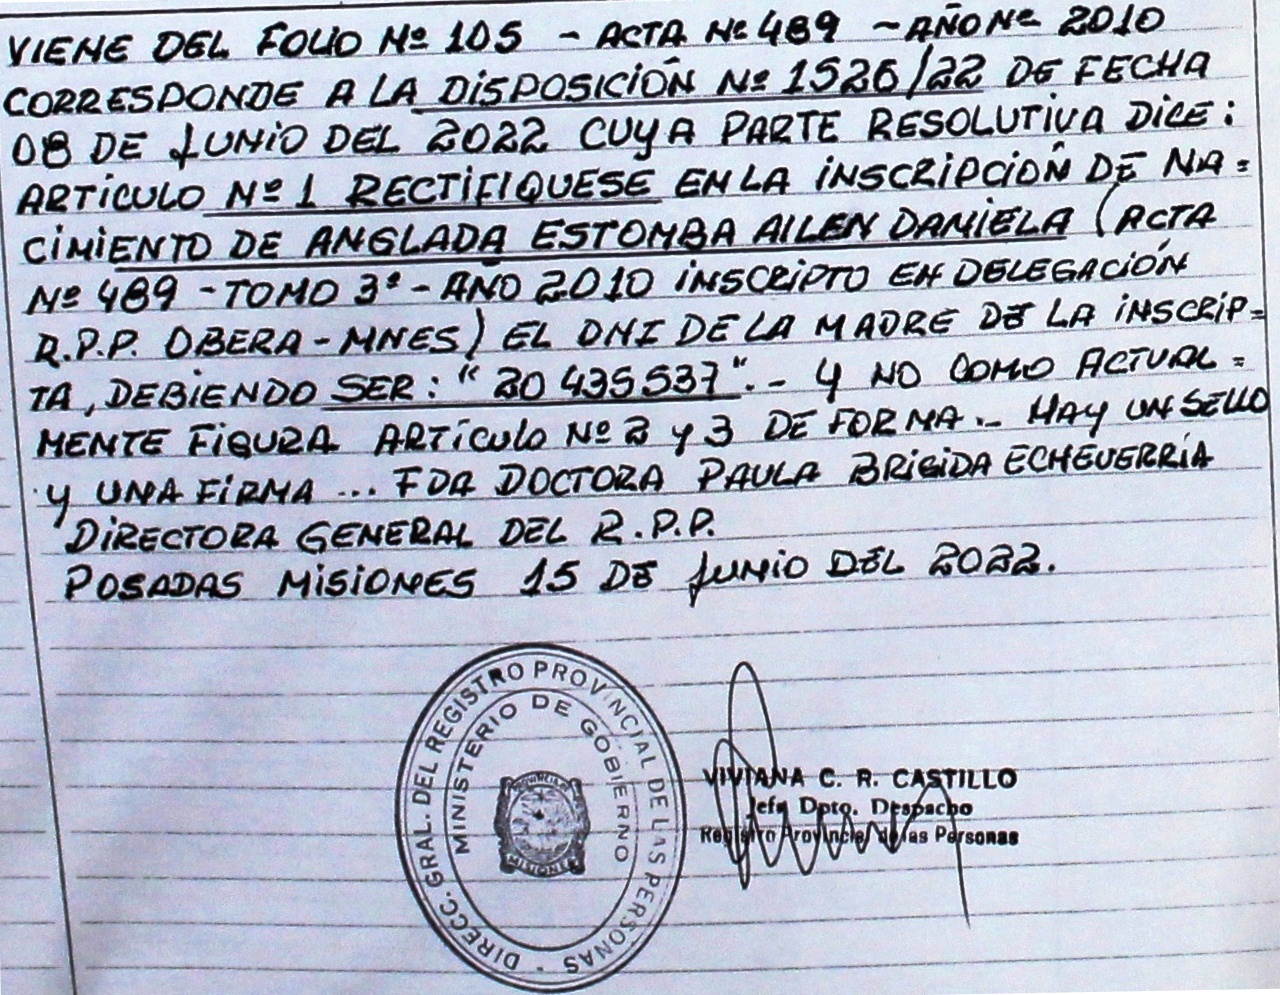 VIENE DEL FOLIO Nº 105 - ACTA Nº 489 - AÑO Nº 2010
CORRESPONDE A LA DISPOSICIÓN Nº 1526/22 DE FECHA
08 DE JUNIO DEL 2022 CUYA PARTE RESOLUTIVA DICE:
ARTÍCULO Nº 1 RECTIFIQUESE EN LA INSCRIPCIÓN DE NA=
CIMIENTO DE ANGLADA ESTOMBA AILEN DANIELA (ACTA
Nº 489 - TOMO 3º - AÑO 2010 INSCRIPTO EN DELEGACIÓN
R.P.P. OBERA - MNES) EL DNI DE LA MADRE DE LA INSCRIP=
TA, DEBIENDO SER: "20 435537".- Y NO COMO ACTUAL=
MENTE FIGURA ARTÍCULO Nº 2 Y 3 DE FORMA.- HAY UN SELLO
Y UNA FIRMA ... FDA DOCTORA PAULA BRIGIDA ECHEVERRÍA
DIRECTORA GENERAL DEL R.P.P.
POSADAS MISIONES 15 DE JUNIO DEL 2022.
DIRECC. GRAL. DEL REGISTRO PROVINCIAL DE LAS PERSONAS
MINISTERIO DE GOBIERNO
PROVINCIA
MISIONES
VIVIANA C. R. CASTILLO
Jefa Dpto. Despacho
Registro Provincial de las Personas